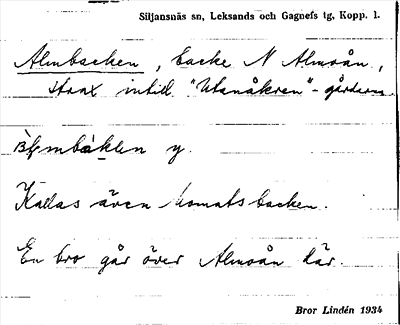 Siljansnäs sn, Leksands och Gagnefs tg, Kopp. l.
Almbacken, backe N Almoån,
strax intill "Utanåkren"-gårdarna.
y.
Kallas även backen.
En bro går över Almoån där.
Bror Lindén 1934